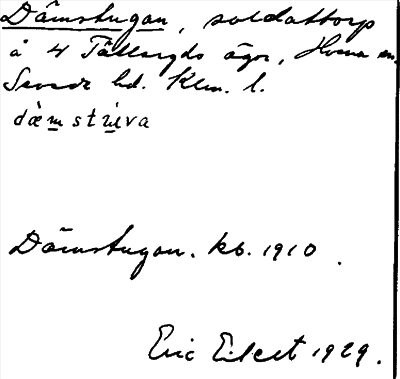 Dämstugan, soldattorp
å 4 Tällaryds ägor, Horna sn.
Sevede hd. Klm. l.
dæ̀mstúva
Dämstugan. kb. 1910.
Eric Eilert 1929.